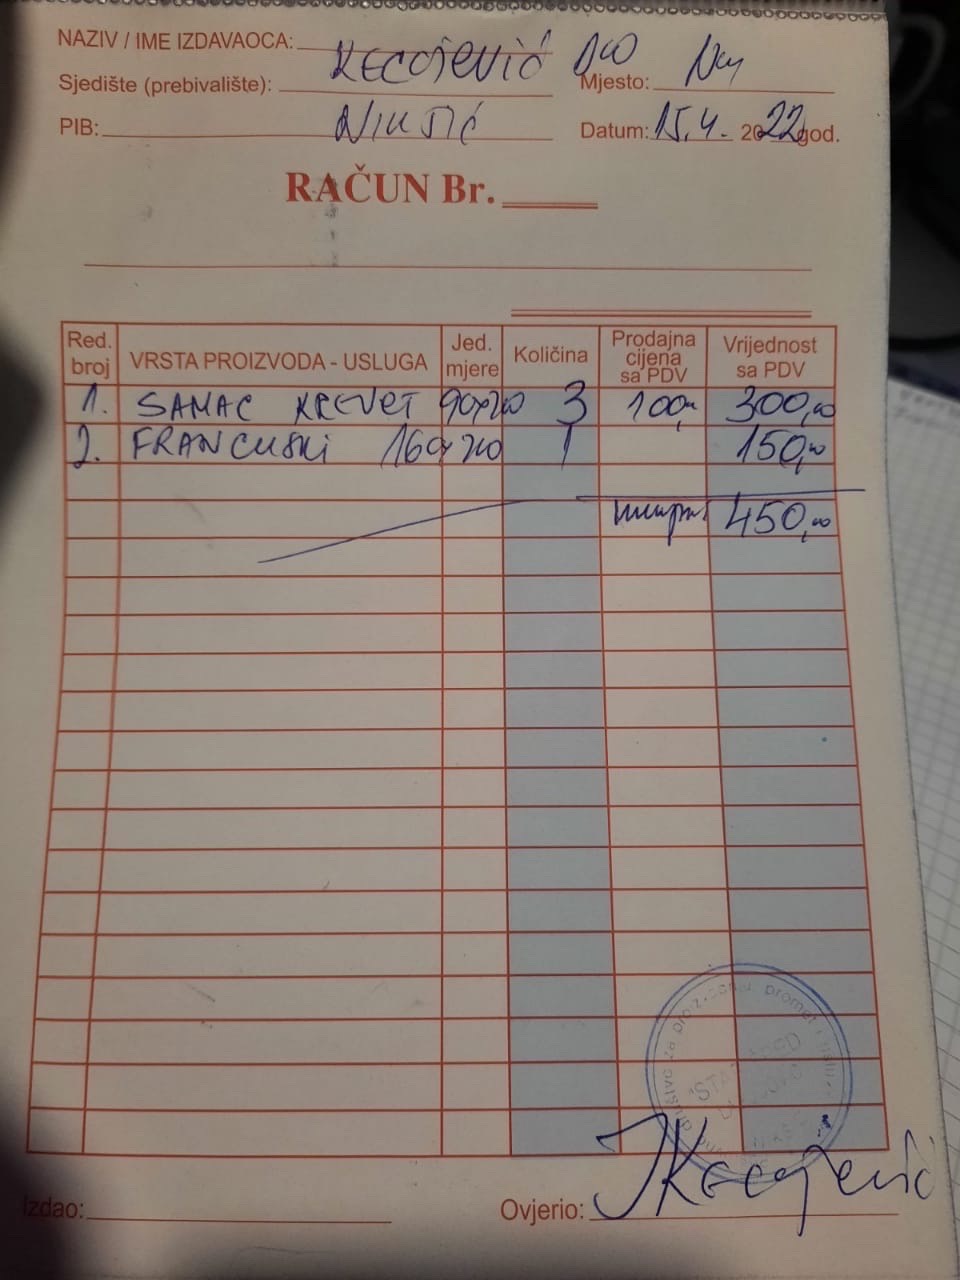 NAZIV / IME IZDAVAOCA: KECOJEVIĆ DOO
Sjedište (prebivalište): Mjesto:
PIB: Datum: 15.4. 2022 god.
RAČUN Br.
Red. broj VRSTA PROIZVODA - USLUGA Jed. mjere Količina Prodajna cijena sa PDV Vrijednost sa PDV
1. SAMAC KREVET 90x20 3 100,00 300,00
2. FRANCUSKI 160x20 1 150,00
450,00
promet
društvo za proizvodnju
Izdao: Ovjerio: Kecojević